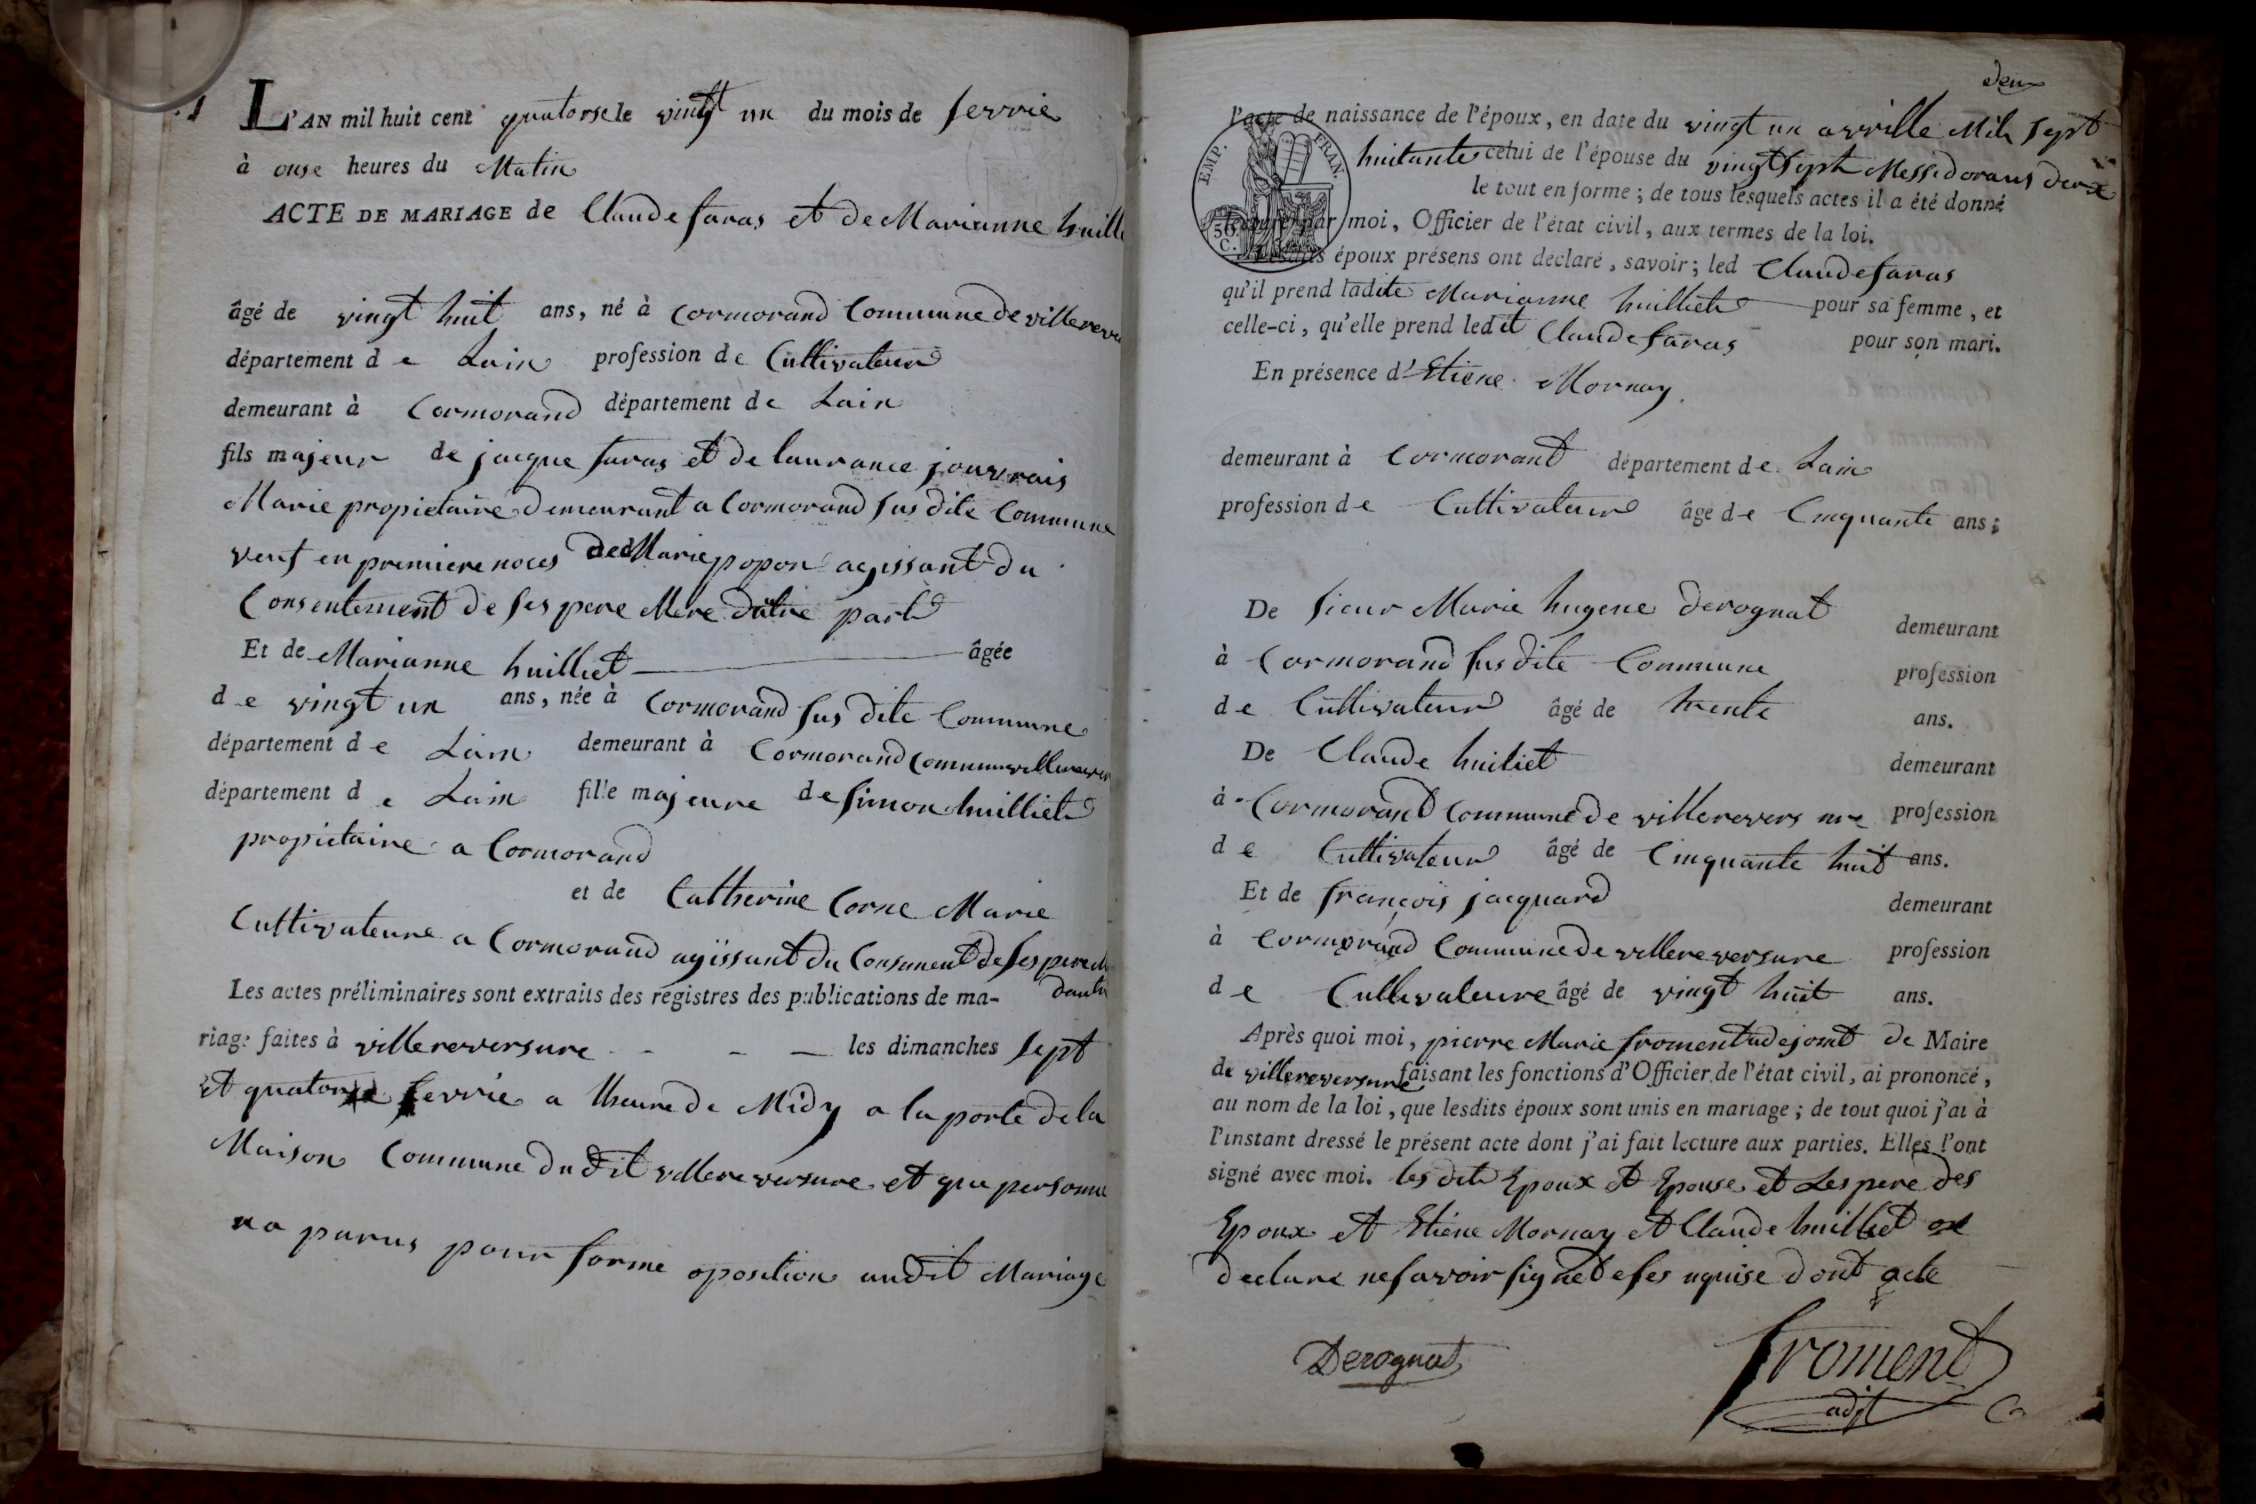 1
L'AN mil huit cent quatorse le vingt un du mois de ferrie
à onse heures du Matin
ACTE DE MARIAGE de Claude faras et de Marianne huill
âgé de vingt huit ans, né à Cormorand Commune de villereve
département de Lain profession de Cultivateur
demeurant à Cormorand département de Lain
fils majeur de jacque faras et de laurance jouvrais
Marie propietaire demeurant a Cormorand sus dite Commune
veuf en premiere noces de Marie popon agissant du
Consentement de ses pere Mere dutre part
Et de Marianne huilliet âgée
de vingt un ans, née à Cormorand sus dite Commune
département de Lain demeurant à Cormorand Commune
département de Lain fille majeure de simon huilliet
propietaire a Cormorand
et de Catherine Corne Marie
Cultivateure a Cormorand agissant du de ses pere
Les actes préliminaires sont extraits des registres des publications de ma-
riage faites à villereversure les dimanches sept
et quatorse ferrie a lheure de Midy a la porte de la
Maison Commune du dit villereversure et que personne
na parus pour forme oposition audit Mariage
deux
l'acte de naissance de l'époux, en date du vingt un avrille Mil sept
huitante celui de l'épouse du vingt sept Messidor
le tout en forme ; de tous lesquels actes il a été donné
EMP. FRAN.
50 C.
lecture par moi, Officier de l'état civil, aux termes de la loi.
Lesdits époux présens ont déclaré, savoir ; led Claude faras
qu'il prend ladite Marianne huilliet pour sa femme, et
celle-ci, qu'elle prend ledit Claude faras pour son mari.
En présence d'Etiene Mornay
demeurant à Cormorant département de Lain
profession de Cultivateur âgé de Cinquante ans ;
De sieur Marie hugene derognat demeurant
à Cormorand sus dite Commune profession
de Cultivateur âgé de trente ans.
De Claude huiliet demeurant
à Cormorand Commune de villerevers ure profession
de Cultivateur âgé de Cinquante huit ans.
Et de françois jacquard demeurant
à Cormorand Commune de villereversure profession
de Cultivateure âgé de vingt huit ans.
Après quoi moi, pierre Marie froment adejoint de Maire
de villereversure faisant les fonctions d'Officier de l'état civil, ai prononcé,
au nom de la loi, que lesdits époux sont unis en mariage ; de tout quoi j'ai à
l'instant dressé le présent acte dont j'ai fait lecture aux parties. Elles l'ont
signé avec moi. les dit Epoux et Epouse et Les pere des
Epoux et Etiene Mornay et Claude huilliet on
declare ne savoir signe dont acte
Derognat
froment
adjt